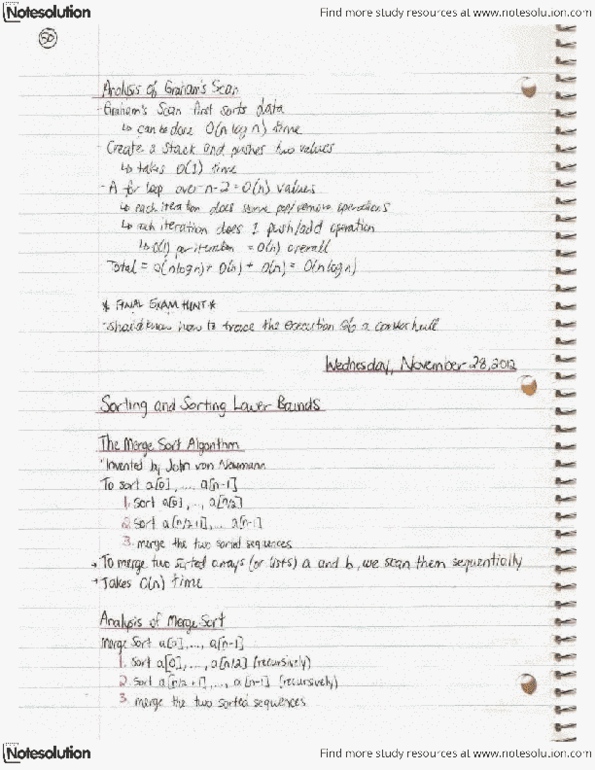 Notesolution
Find more study resources at www.notesolution.com
50
Analysis of Graham's Scan
- Graham's Scan first sorts data
↳ can be done O(n log n) time
- Create a stack and pushes two values
↳ takes O(1) time
- A for loop over n-2 = O(n) values
↳ each iteration does some pop/remove operations
↳ each iteration does 1 push/add operation
↳ O(1) per iteration = O(n) overall
Total = O(nlogn) + O(n) + O(n) = O(nlogn)
* FINAL EXAM HINT *
- should know how to trace the execution of a convex hull
Wednesday, November 28, 2012
Sorting and Sorting Lower Bounds
The Merge Sort Algorithm
- Invented by John von Neumann
To sort a[0], ..., a[n-1]
1. sort a[0], .., a[n/2]
2. sort a[n/2+1], .. a[n-1]
3. merge the two sorted sequences
→ To merge two sorted arrays (or lists) a and b, we scan them sequentially
→ Takes O(n) time
Analysis of Merge Sort
Merge Sort a[0], ..., a[n-1]
1. sort a[0], ..., a[n/2] (recursively)
2. sort a[n/2+1], ..., a[n-1] (recursively)
3. merge the two sorted sequences
Notesolution
Find more study resources at www.notesolution.com